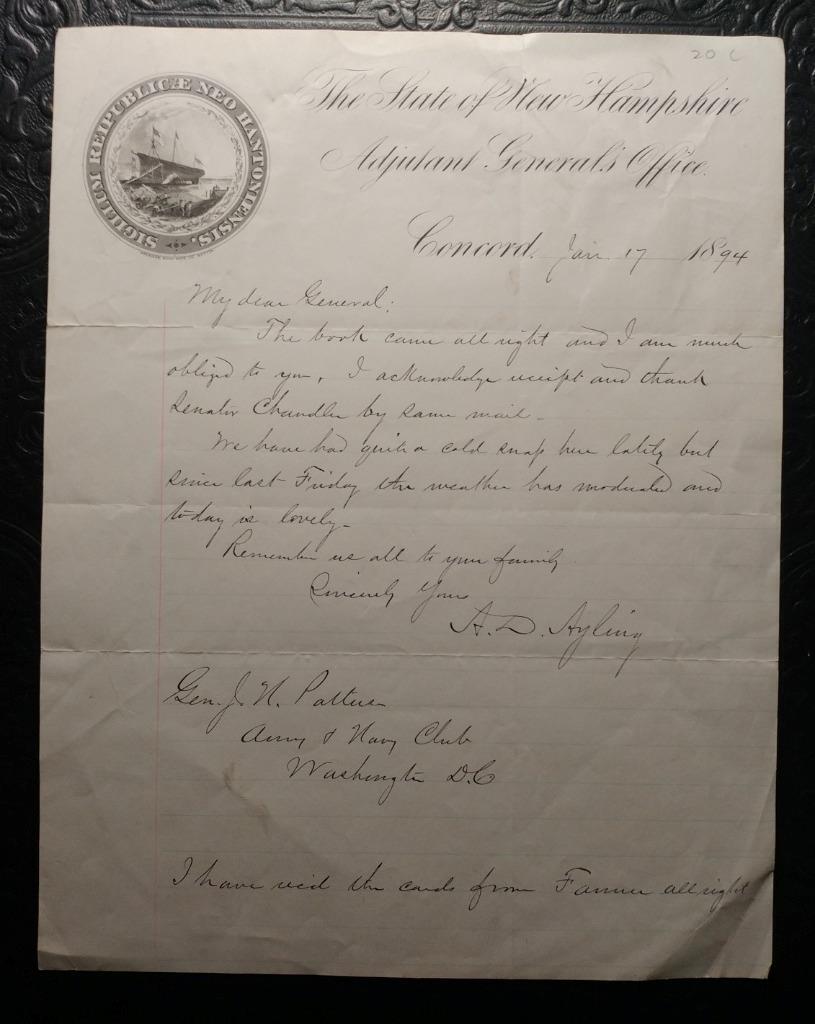 20 C
SIGILLUM REIPUBLICÆ NEO HANTONIENSIS.
The State of New Hampshire
Adjutant General's Office.
Concord, Jan 17 1894
My dear General:
The book came all right and I am much
obliged to you. I acknowledge receipt and thank
Senator Chandler by same mail.
We have had quite a cold snap here lately but
since last Friday the weather has moderated and
today is lovely.
Remember us all to your family
Sincerely Yours
A. D. Ayling
Gen. J. N. Patterson
Army & Navy Club
Washington D.C
I have rec'd the cards from Farmer all right